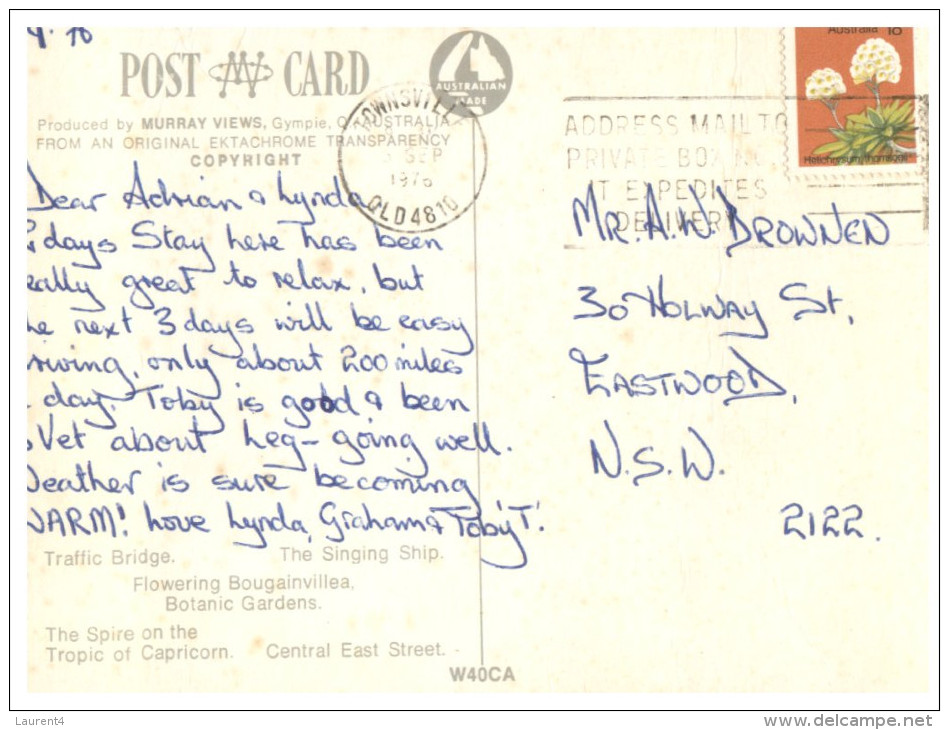 POST CARD
AUSTRALIAN
Produced by MURRAY VIEWS, Gympie, AUSTRALIA
FROM AN ORIGINAL EKTACHROME TRANSPARENCY
COPYRIGHT
SEP
1976
QLD 4810
Australia 10
Helichrysum thomsonii
ADDRESS MAIL TO
PRIVATE BOX
IT EXPEDITES
DELIVERY
Dear Adrian & Lynda
days Stay here has been
eally great to relax, but
he next 3 days will be easy
riving, only about 200 miles
day. Toby is good & been
Vet about leg - going well.
Weather is sure becoming
WARM! Love Lynda, Graham & Toby 'T'.
MR. A.W. DROWNEN
30 HOLWAY St,
EASTWOOD,
N.S.W.
2122.
Traffic Bridge. The Singing Ship.
Flowering Bougainvillea,
Botanic Gardens.
The Spire on the
Tropic of Capricorn. Central East Street.
W40CA
Laurent4
www.delcampe.net